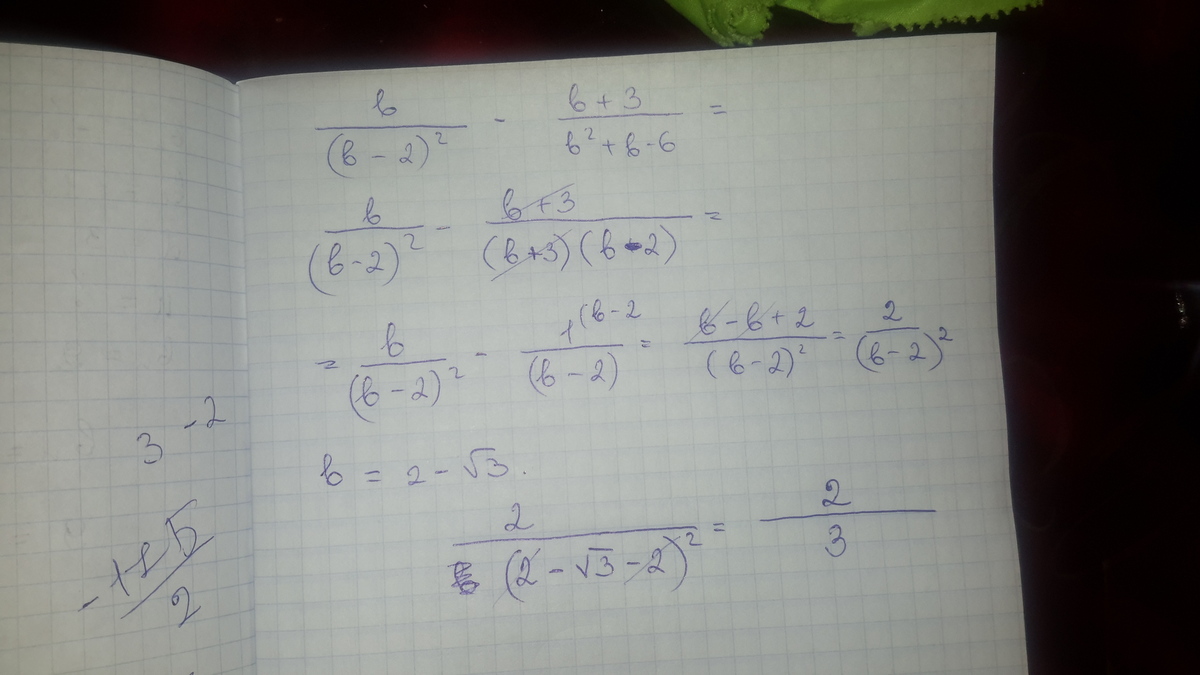 b/(b - 2)² - (b + 3)/(b² + b - 6) =
b/(b - 2)² - (b + 3)/((b + 3)(b - 2)) =
= b/(b - 2)² - 1^(b - 2/(b - 2) = (b - b + 2)/(b - 2)² = 2/(b - 2)²
b = 2 - √3.
2/(2 - √3 - 2)² = 2/3
3 -2